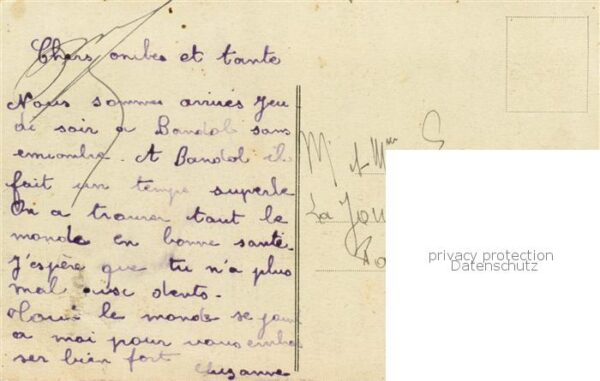 Chers oncles et tante
Nous sommes arrivés jeu
di soir a Bandol sans
encombre. A Bandol il
fait un temps superbe
On a trouver tout le
monde en bonne santé.
J'espère que tu n'a plus
mal aux dents.
Tout le monde se join
a moi pour vous embra
ser bien fort
Suzanne
M et Mme S
La Jou
privacy protection
Datenschutz